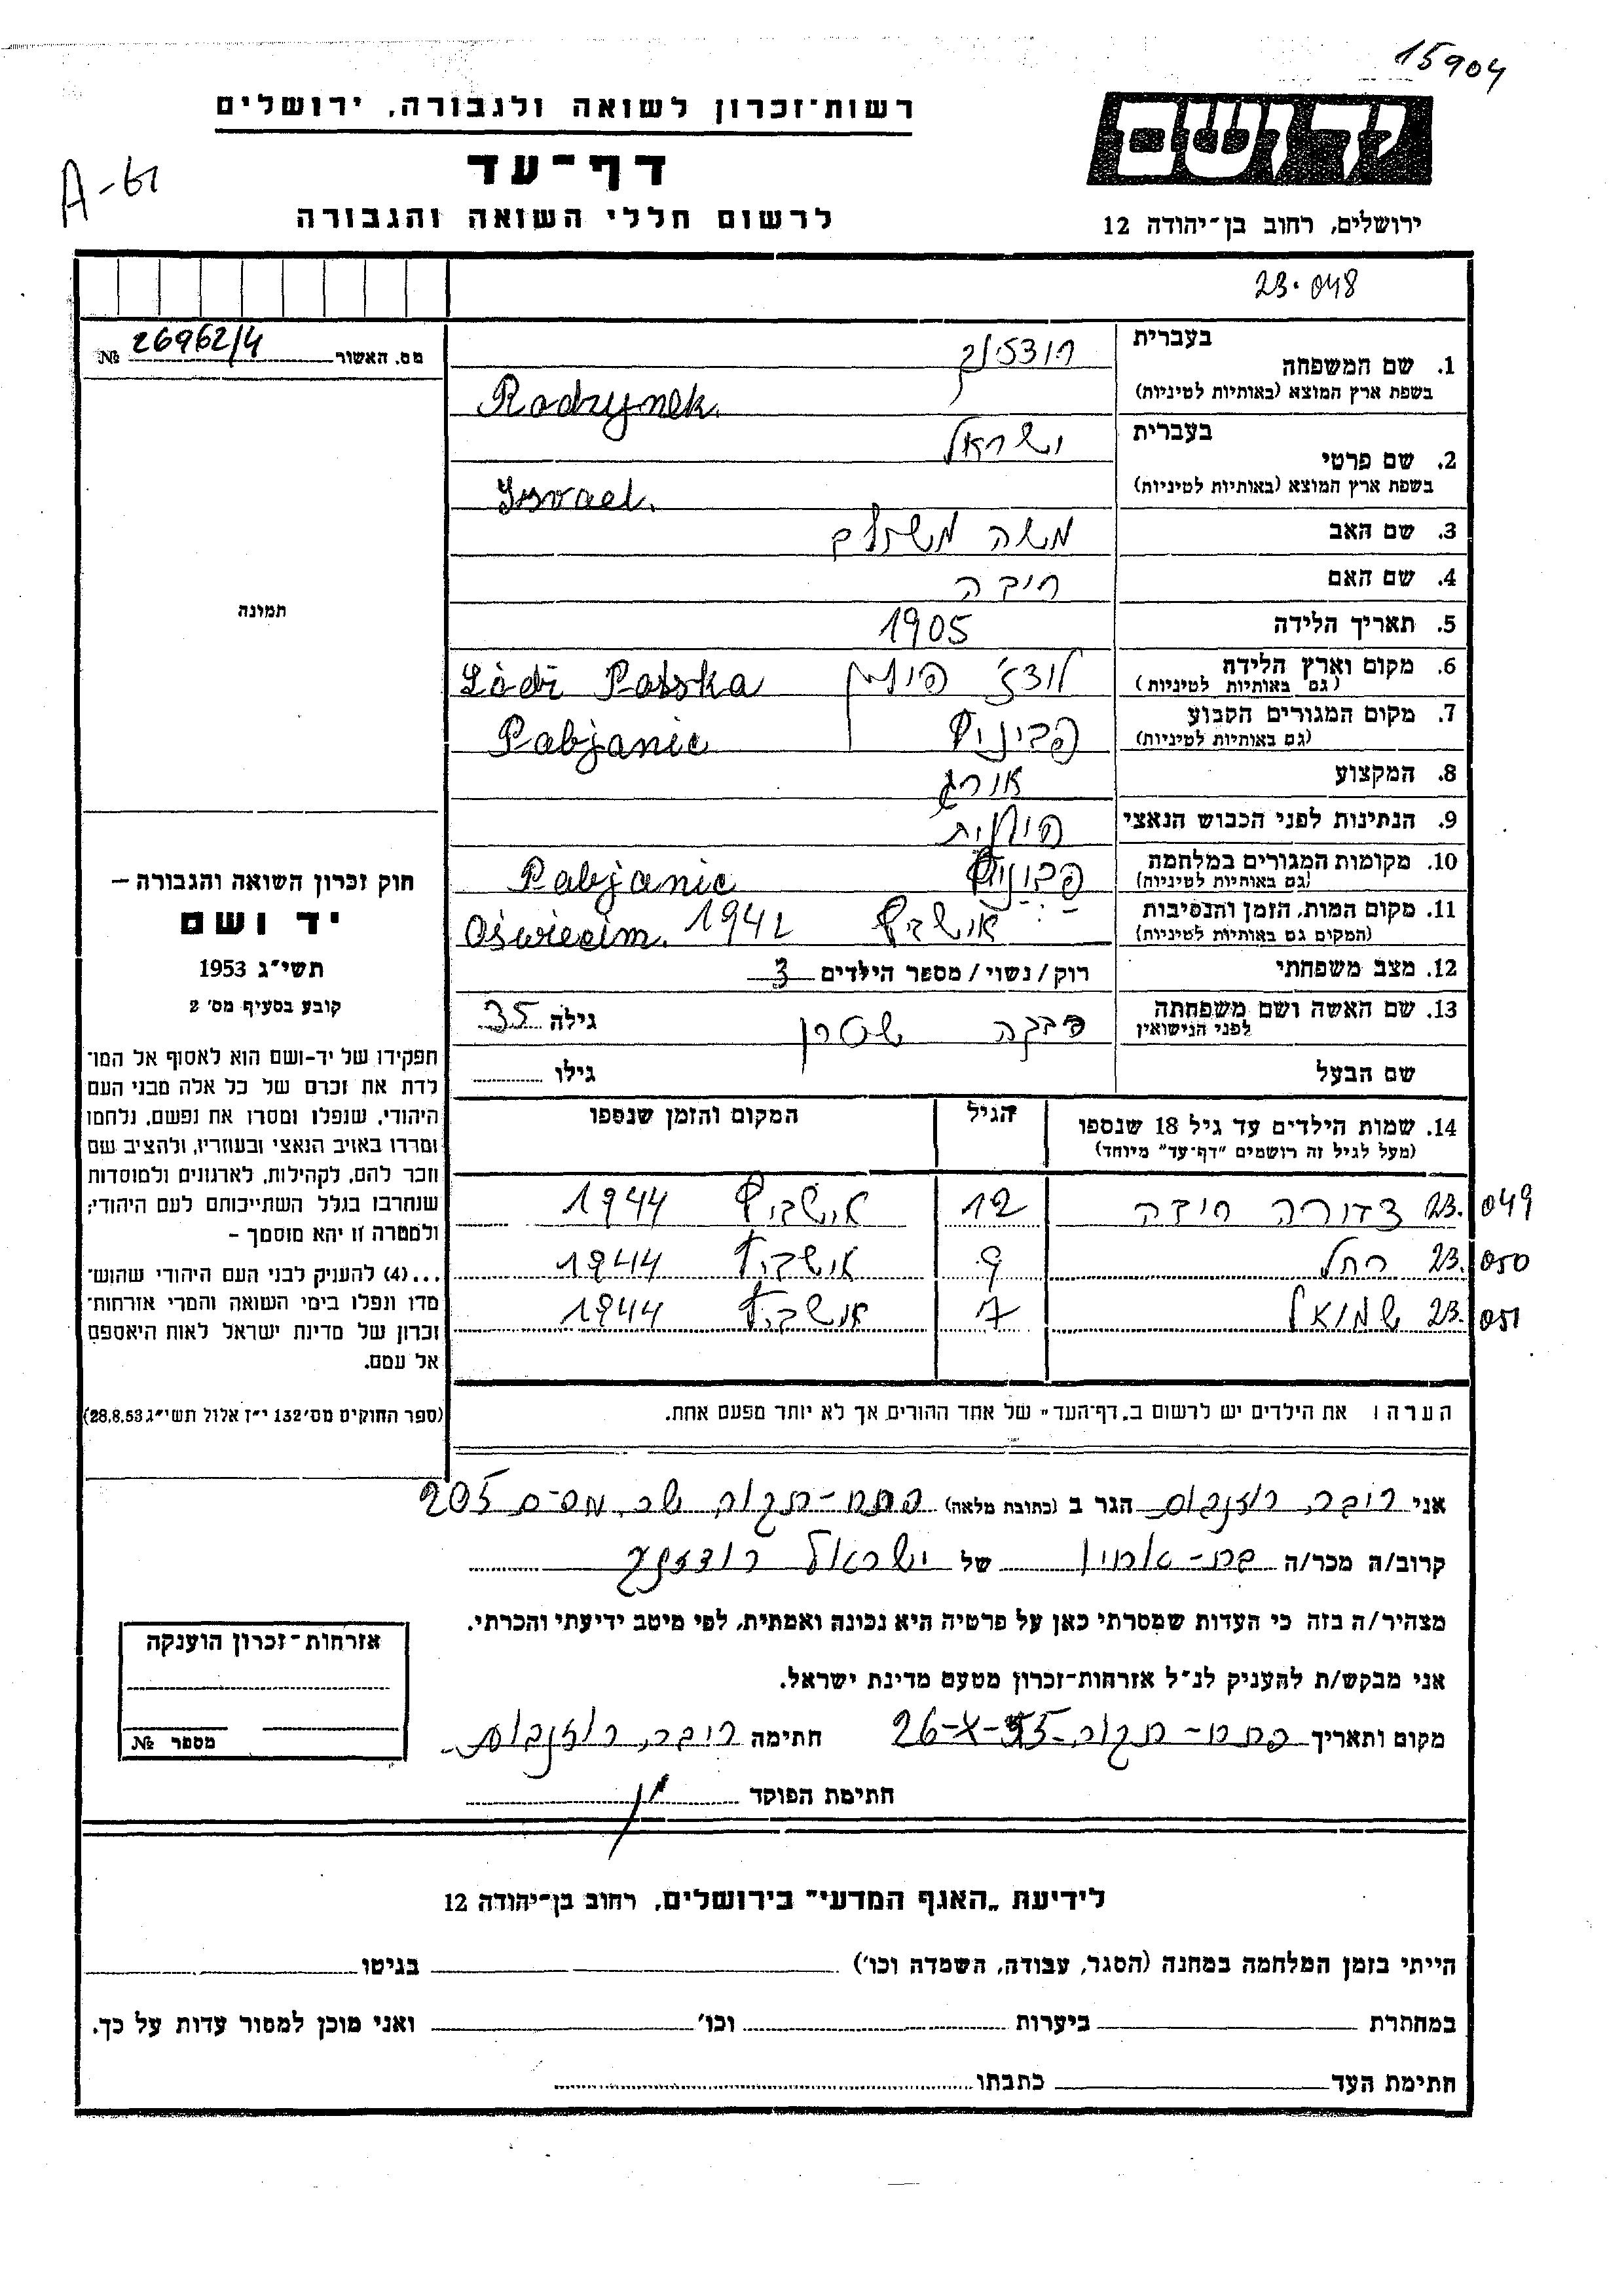 15904
רשות־זכרון לשואה ולגבורה, ירושלים
יד ושם
דף־עד
A-61
לרשום חללי השואה והגבורה
ירושלים, רחוב בן־יהודה 12
23.048
מס. האשור 26962/4 №
בעברית
1. שם המשפחה
בשפת ארץ המוצא (באותיות לטיניות) Radzynek.
בעברית ישראל
2. שם פרטי
בשפת ארץ המוצא (באותיות לטיניות) Israel.
3. שם האב משה משולם
4. שם האם
5. תאריך הלידה 1905
6. מקום וארץ הלידה לודז' פולין Łódź Polska
(גם באותיות לטיניות)
7. מקום המגורים הקבוע פביניץ Pabjanic
(גם באותיות לטיניות)
8. המקצוע אורג
9. הנתינות לפני הכבוש הנאצי פולנית
10. מקומות המגורים במלחמה Pabjanic
(גם באותיות לטיניות)
11. מקום המות, הזמן והנסיבות אושביץ 1942 Oświecim.
(המקום גם באותיות לטיניות)
12. מצב משפחתי רוק/נשוי/מספר הילדים 3
13. שם האשה ושם משפחתה שטרן גילה 35
לפני הנישואין
שם הבעל גילו
14. שמות הילדים עד גיל 18 שנספו הגיל המקום והזמן שנספו
(מעל לגיל זה רושמים "דף־עד" מיוחד)
23.049 12 אושביץ 1944
23.050 רחל 9 אושביץ 1944
23.051 שמואל 7 אושביץ 1944
הערה: את הילדים יש לרשום ב„דף־העד" של אחד ההורים אך לא יותר מפעם אחת.
תמונה
חוק זכרון השואה והגבורה –
יד ושם
תשי"ג 1953
קובע בסעיף מס' 2
תפקידו של יד-ושם הוא לאסוף אל המו־
לדת את זכרם של כל אלה מבני העם
היהודי, שנפלו ומסרו את נפשם, נלחמו
ומרדו באויב הנאצי ובעוזריו, ולהציב שם
וזכר להם, לקהילות, לארגונים ולמוסדות
שנחרבו בגלל השתייכותם לעם היהודי;
ולמטרה זו יהא מוסמך –
...(4) להעניק לבני העם היהודי שהוש־
מדו ונפלו בימי השואה והמרי אזרחות־
זכרון של מדינת ישראל לאות היאספם
אל עמם.
(ספר החוקים מס' 132 י"ז אלול תשי"ג 28.8.53)
אני רוזנבוים הגר ב (כתובת מלאה) פתח-תקוה 205
קרוב/ה מכר/ה בת-אחין של ישראל
מצהיר/ה בזה כי העדות שמסרתי כאן על פרטיה היא נכונה ואמתית, לפי מיטב ידיעתי והכרתי.
אני מבקש/ת להעניק לנ"ל אזרחות-זכרון מטעם מדינת ישראל.
מקום ותאריך פתח-תקוה 26-X-55 חתימה רוזנבוים
חתימת הפוקד
אזרחות־זכרון הוענקה
מספר №
לידיעת „האגף המדעי" בירושלים, רחוב בן־יהודה 12
הייתי בזמן המלחמה במחנה (הסגר, עבודה, השמדה וכו') בגיטו
במחתרת ביערות וכו' ואני מוכן למסור עדות על כך.
חתימת העד כתבתו